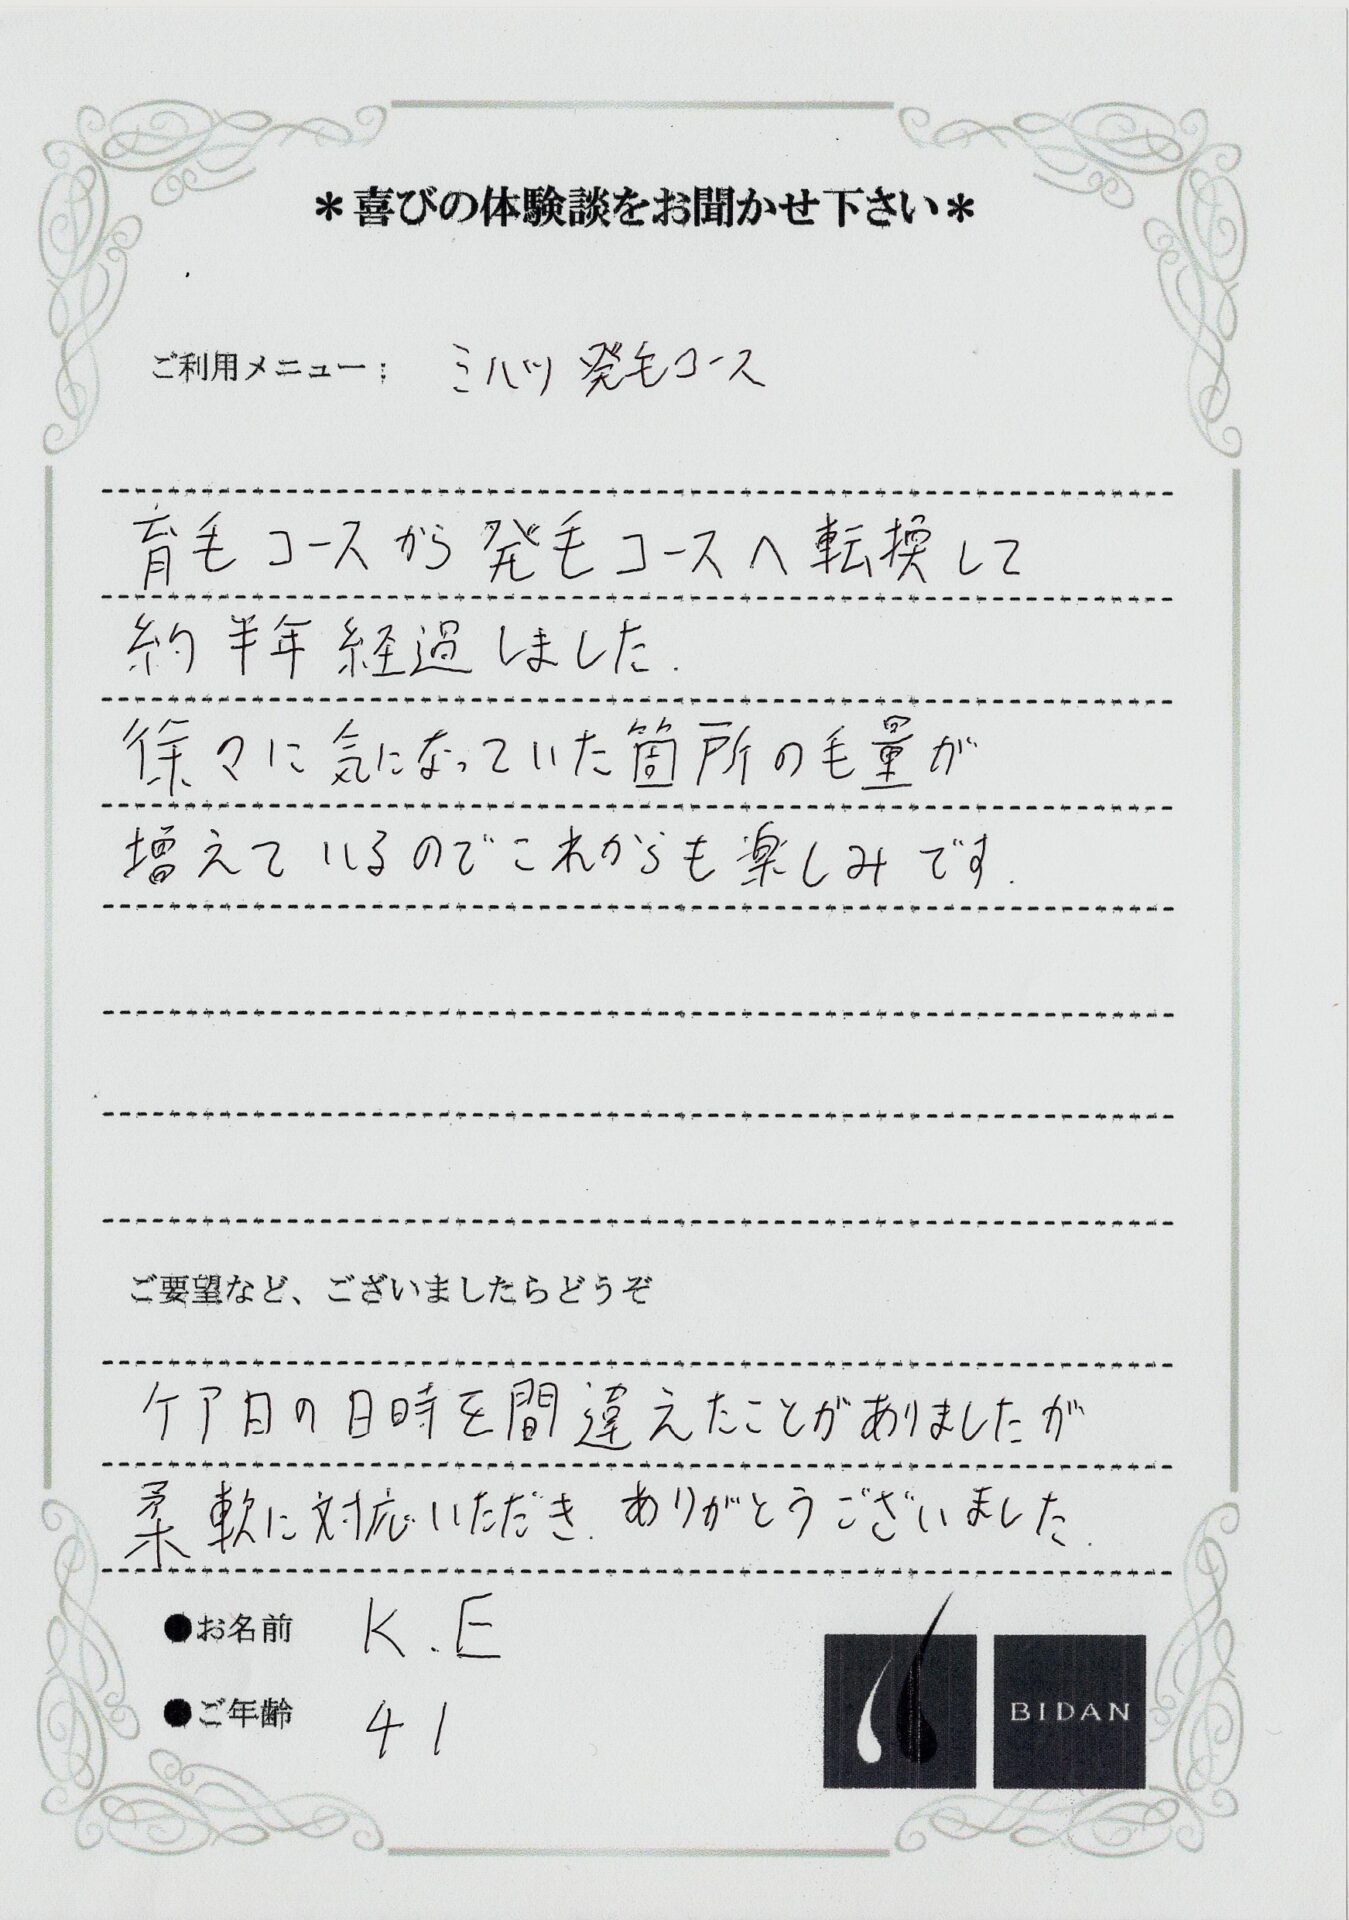 ＊喜びの体験談をお聞かせ下さい＊
ご利用メニュー： ミハツ 発毛コース
育毛コースから発毛コースへ転換して
約半年経過しました.
徐々に気になっていた箇所の毛量が
増えているのでこれからも楽しみです.
ご要望など、ございましたらどうぞ
ケア日の日時を間違えたことがありましたが
柔軟に対応いただき.ありがとうございました.
●お名前 K.E
●ご年齢 41
BIDAN